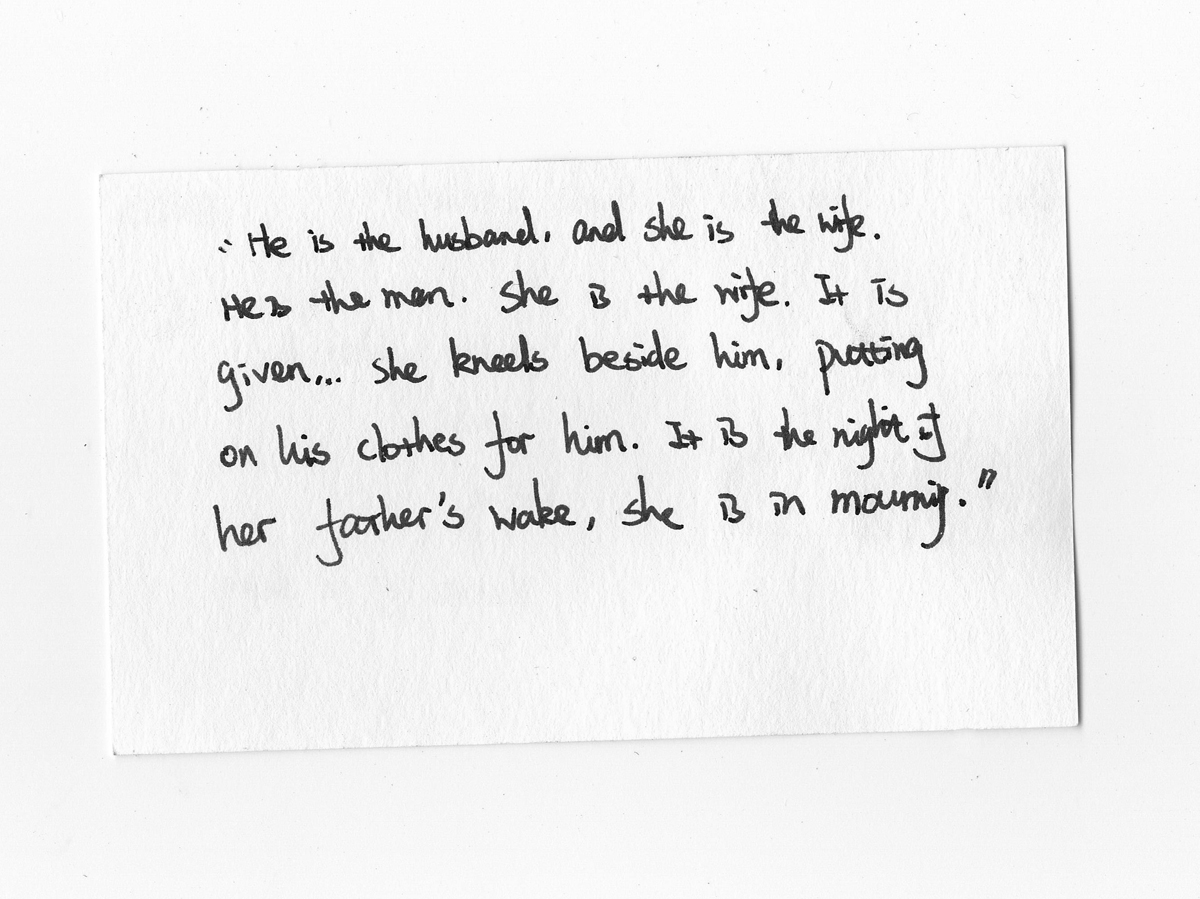 "He is the husband, and she is the wife.
He is the man. She is the wife. It is
given... she kneels beside him, putting
on his clothes for him. It is the night of
her father's wake, she is in mourning."